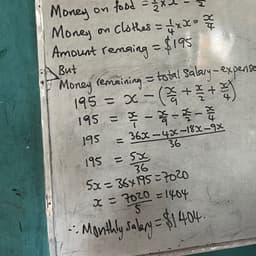 Money on food = 1/2 × x = x/2
Money on clothes = 1/4 × x = x/4
Amount remaing = $195
But
Money remaining = total salary - expense
195 = x - (x/9 + x/2 + x/4)
195 = x/1 - x/9 - x/2 - x/4
195 = 36x - 4x - 18x - 9x / 36
195 = 5x/36
5x = 36×195 = 7020
x = 7020/5 = 1404
∴ Monthly salary = $1404.